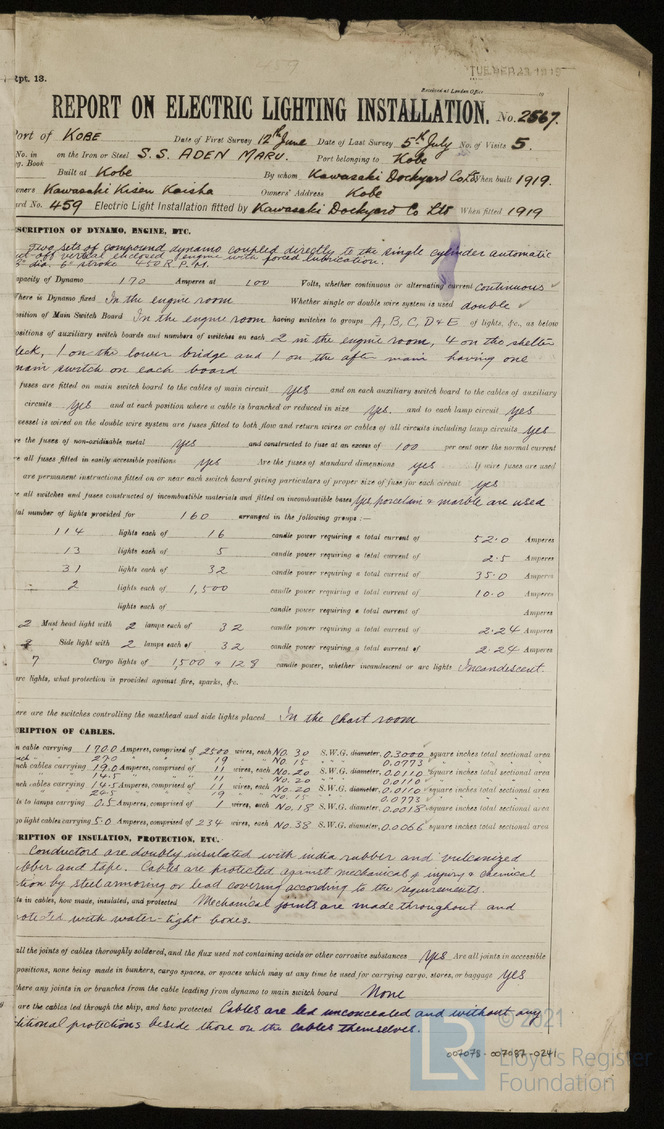 Rpt. 13.
459
TUE. DEC 23 1919
Received at London Office
REPORT ON ELECTRIC LIGHTING INSTALLATION. No. 2567.
Port of KOBE Date of First Survey 12th June Date of Last Survey 5th July No. of Visits 5.
No. in on the Iron or Steel S.S. ADEN MARU. Port belonging to Kobe
g. Book Built at Kobe By whom Kawasaki Dockyard Co Ltd When built 1919.
ners Kawasaki Kisen Kaisha Owners' Address Kobe
rd No. 459 Electric Light Installation fitted by Kawasaki Dockyard Co Ltd When fitted 1919
SCRIPTION OF DYNAMO, ENGINE, ETC.
Two sets of compound dynamo coupled directly to the single cylinder automatic
cut-off vertical enclosed engine with forced lubrication.
dia. 6" stroke 450 R.P.M.
apacity of Dynamo 170 Amperes at 100 Volts, whether continuous or alternating current continuous
here is Dynamo fixed In the engine room Whether single or double wire system is used double
osition of Main Switch Board In the engine room having switches to groups A, B, C, D & E of lights, &c., as below
ositions of auxiliary switch boards and numbers of switches on each 2 in the engine room, 4 on the shelter
deck, 1 on the lower bridge and 1 on the aft main having one
main switch on each board
fuses are fitted on main switch board to the cables of main circuit yes and on each auxiliary switch board to the cables of auxiliary
circuits yes and at each position where a cable is branched or reduced in size yes. and to each lamp circuit yes
vessel is wired on the double wire system are fuses fitted to both flow and return wires or cables of all circuits including lamp circuits yes
re the fuses of non-oxidizable metal yes and constructed to fuse at an excess of 100 per cent over the normal current
re all fuses fitted in easily accessible positions yes Are the fuses of standard dimensions yes If wire fuses are used
are permanent instructions fitted on or near each switch board giving particulars of proper size of fuse for each circuit yes
re all switches and fuses constructed of incombustible materials and fitted on incombustible bases yes porcelain & marble are used
tal number of lights provided for 160 arranged in the following groups :—
114 lights each of 16 candle power requiring a total current of 52.0 Amperes
13 lights each of 5 candle power requiring a total current of 2.5 Amperes
31 lights each of 32 candle power requiring a total current of 35.0 Amperes
2 lights each of 1,500 candle power requiring a total current of 10.0 Amperes
lights each of candle power requiring a total current of Amperes
2 Mast head light with 2 lamps each of 32 candle power requiring a total current of 2.24 Amperes
2 Side light with 2 lamps each of 32 candle power requiring a total current of 2.24 Amperes
7 Cargo lights of 1,500 & 128 candle power, whether incandescent or arc lights Incandescent.
arc lights, what protection is provided against fire, sparks, &c.
ere are the switches controlling the masthead and side lights placed In the chart room
CRIPTION OF CABLES.
in cable carrying 170.0 Amperes, comprised of 2500 wires, each No. 30 S.W.G. diameter, 0.3000 square inches total sectional area
27.0 " " " 19 " No. 15 " " " 0.0773
nch cables carrying 19.0 Amperes, comprised of 11 wires, each No. 20 S.W.G. diameter, 0.0110 square inches total sectional area
14.5 " No. 20 " 0.0110
nch cables carrying 14.5 Amperes, comprised of 11 wires, each No. 20 S.W.G. diameter, 0.0110 square inches total sectional area
24.5 " 19 " No. 15 " 0.0773
ds to lamps carrying 0.5 Amperes, comprised of 1 wires, each No. 18 S.W.G. diameter, 0.0018 square inches total sectional area
go light cables carrying 5.0 Amperes, comprised of 234 wires, each No. 38 S.W.G. diameter, 0.0066 square inches total sectional area
CRIPTION OF INSULATION, PROTECTION, ETC.
Conductors are doubly insulated with india rubber and vulcanized
ubber and tape. Cables are protected against mechanical injury & chemical
action by steel armoring or lead covering according to the requirements.
ts in cables, how made, insulated, and protected Mechanical joints are made throughout and
protected with water-tight boxes.
all the joints of cables thoroughly soldered, and the flux used not containing acids or other corrosive substances yes Are all joints in accessible
positions, none being made in bunkers, cargo spaces, or spaces which may at any time be used for carrying cargo, stores, or baggage yes
there any joints in or branches from the cable leading from dynamo to main switch board None
are the cables led through the ship, and how protected Cables are led unconcealed and without any
ditional protections beside those on the cables themselves.
007078-007087-0241
LR
© 2021
Lloyd's Register
Foundation